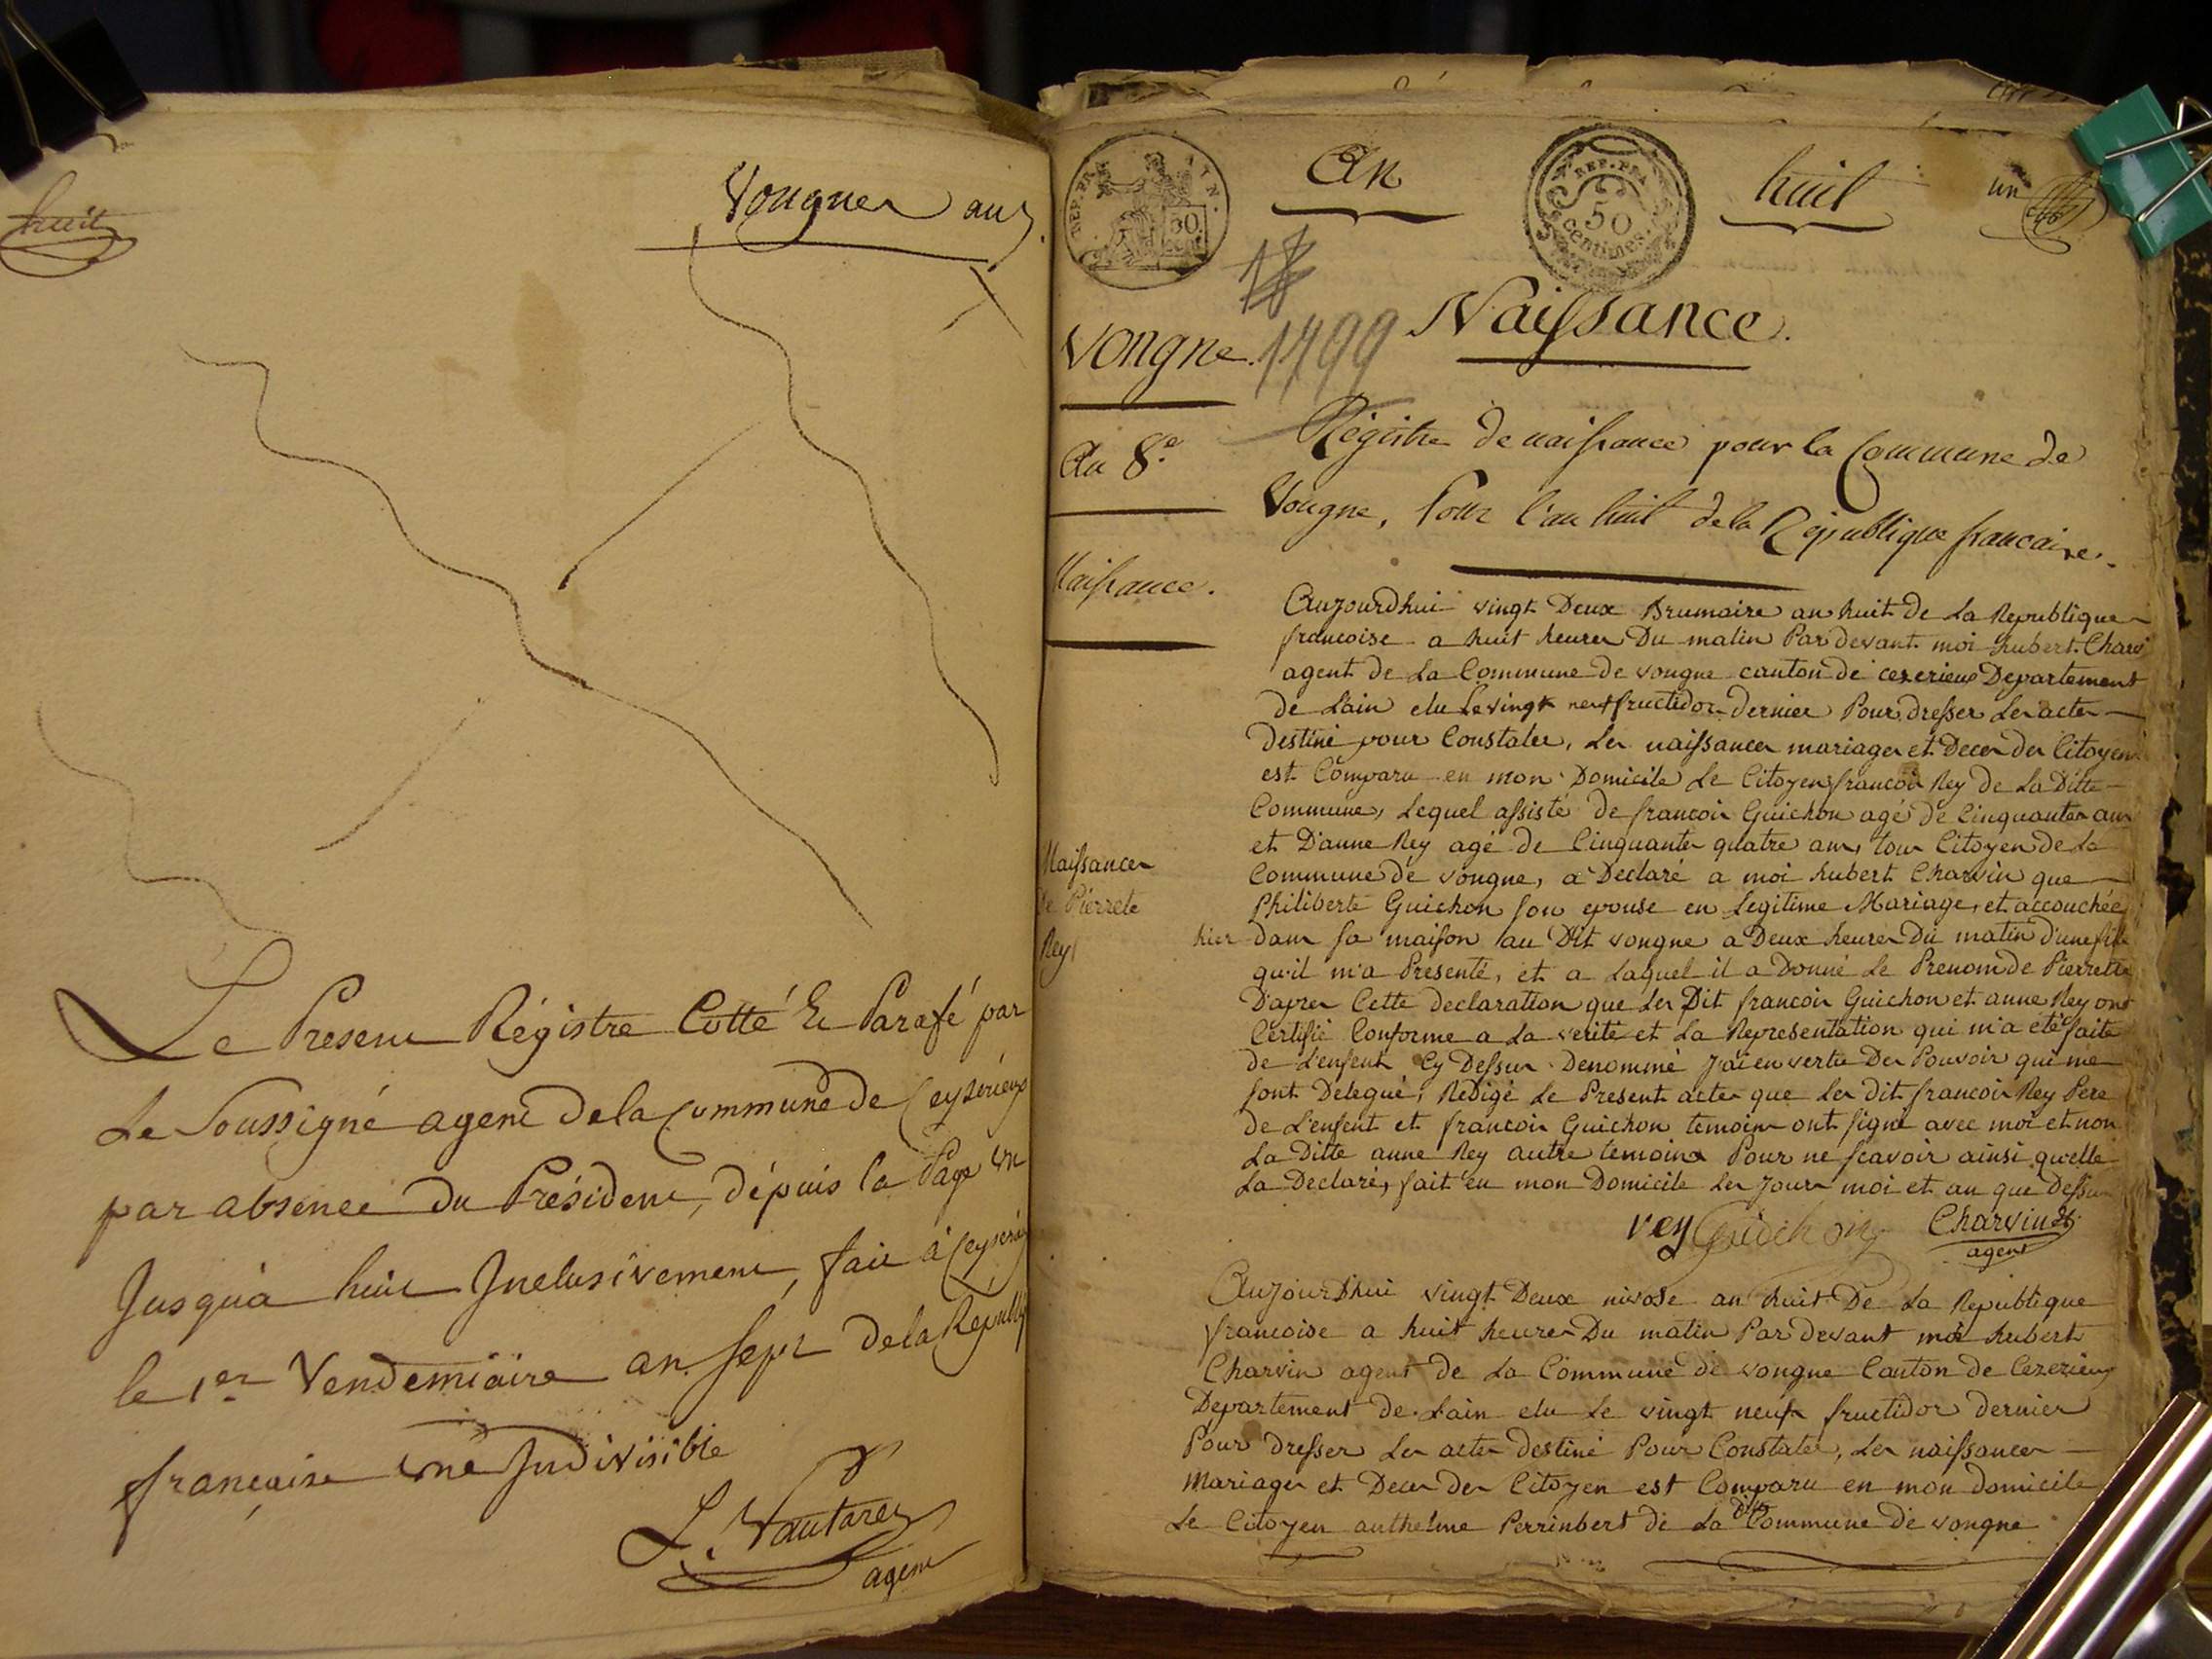 huit
Vongnes an 7.
Le Present Régistre Cotté & Parafé par
Le Soussigné agent de la Commune de Ceyserieux
par absence du Président, dépuis la Page un
Jusqu'à huit Inclusivement, fait à Ceyserieu
le 1er Vendemiaire an Sept de la Republi
française une Indivisible
L. Vautarez
agent
REP. FRA
50
cent
An
REP. FRA
50
centimes.
huit
un
18
Naissance.
Vongne.
1799
An 8e.
Naissance.
Régistre de naissance pour la Commune de
Vongne, Pour l'an huit de la République francaise.
Aujourdhui vingt Deux Brumaire an huit de La Republique
francoise a huit heures Du matin Par devant moi hubert Charv
agent de La Commune de vongne canton de cezerieux Departement
de Lain elu le vingt neuf fructidor dernier Pour dresser Les actes
Destiné pour Constater, Les naissances mariages et Deces des Citoyens
est Comparu en mon Domicile Le Citoyen francois Rey de La Ditte
Commune, Lequel assisté de francois Guichon agé de Cinquantes ans
et D'anne Rey agé de Cinquantes quatre ans, tous Citoyen de La
Commune de vongne, a Declaré a moi hubert Charvin que
Philiberte Guichon son epouse en Legitime Mariage, et accouchée
hier dans sa maison au Dit vongne a Deux heures Du matin d'une fille
qu'il m'a Presenté, et a Laquel il a Donné Le Prenom de Pierrette
D'apres Cette declaration que Les Dit francois Guichon et anne Rey ont
Certifié Conforme a La verité et La Representation qui m'a été faite
de L'enfent Cy Dessus Denommé J'ai en vertu Des Pouvoir qui me
sont Delegué, Redigé Le Present actes que Les dit francois Rey Pere
de L'enfent et francois Guichon temoins ont signé avec moi et non
La Ditte anne Rey autre temoins Pour ne scavoir ainsi qu'elle
La Declaré, fait en mon Domicile Les Jours moi et an que Dessus
Naissances
de Pierrete
Rey
rey Guichon Charvin
agent
Aujourdhui vingt Deux nivose an huit De La Republique
francoise a huit heures Du matin Par devant moi hubert
Charvin agent de La Commune de vongne Canton de Cezerieux
Departement de Lain elu Le vingt neuf fructidor dernier
Pour Dresser Les actes destiné Pour Constater, Les naissances
Mariages et Deces des Citoyen est Comparu en mon domicile
Le Citoyen anthelme Perrinbert de La dite Commune de vongne